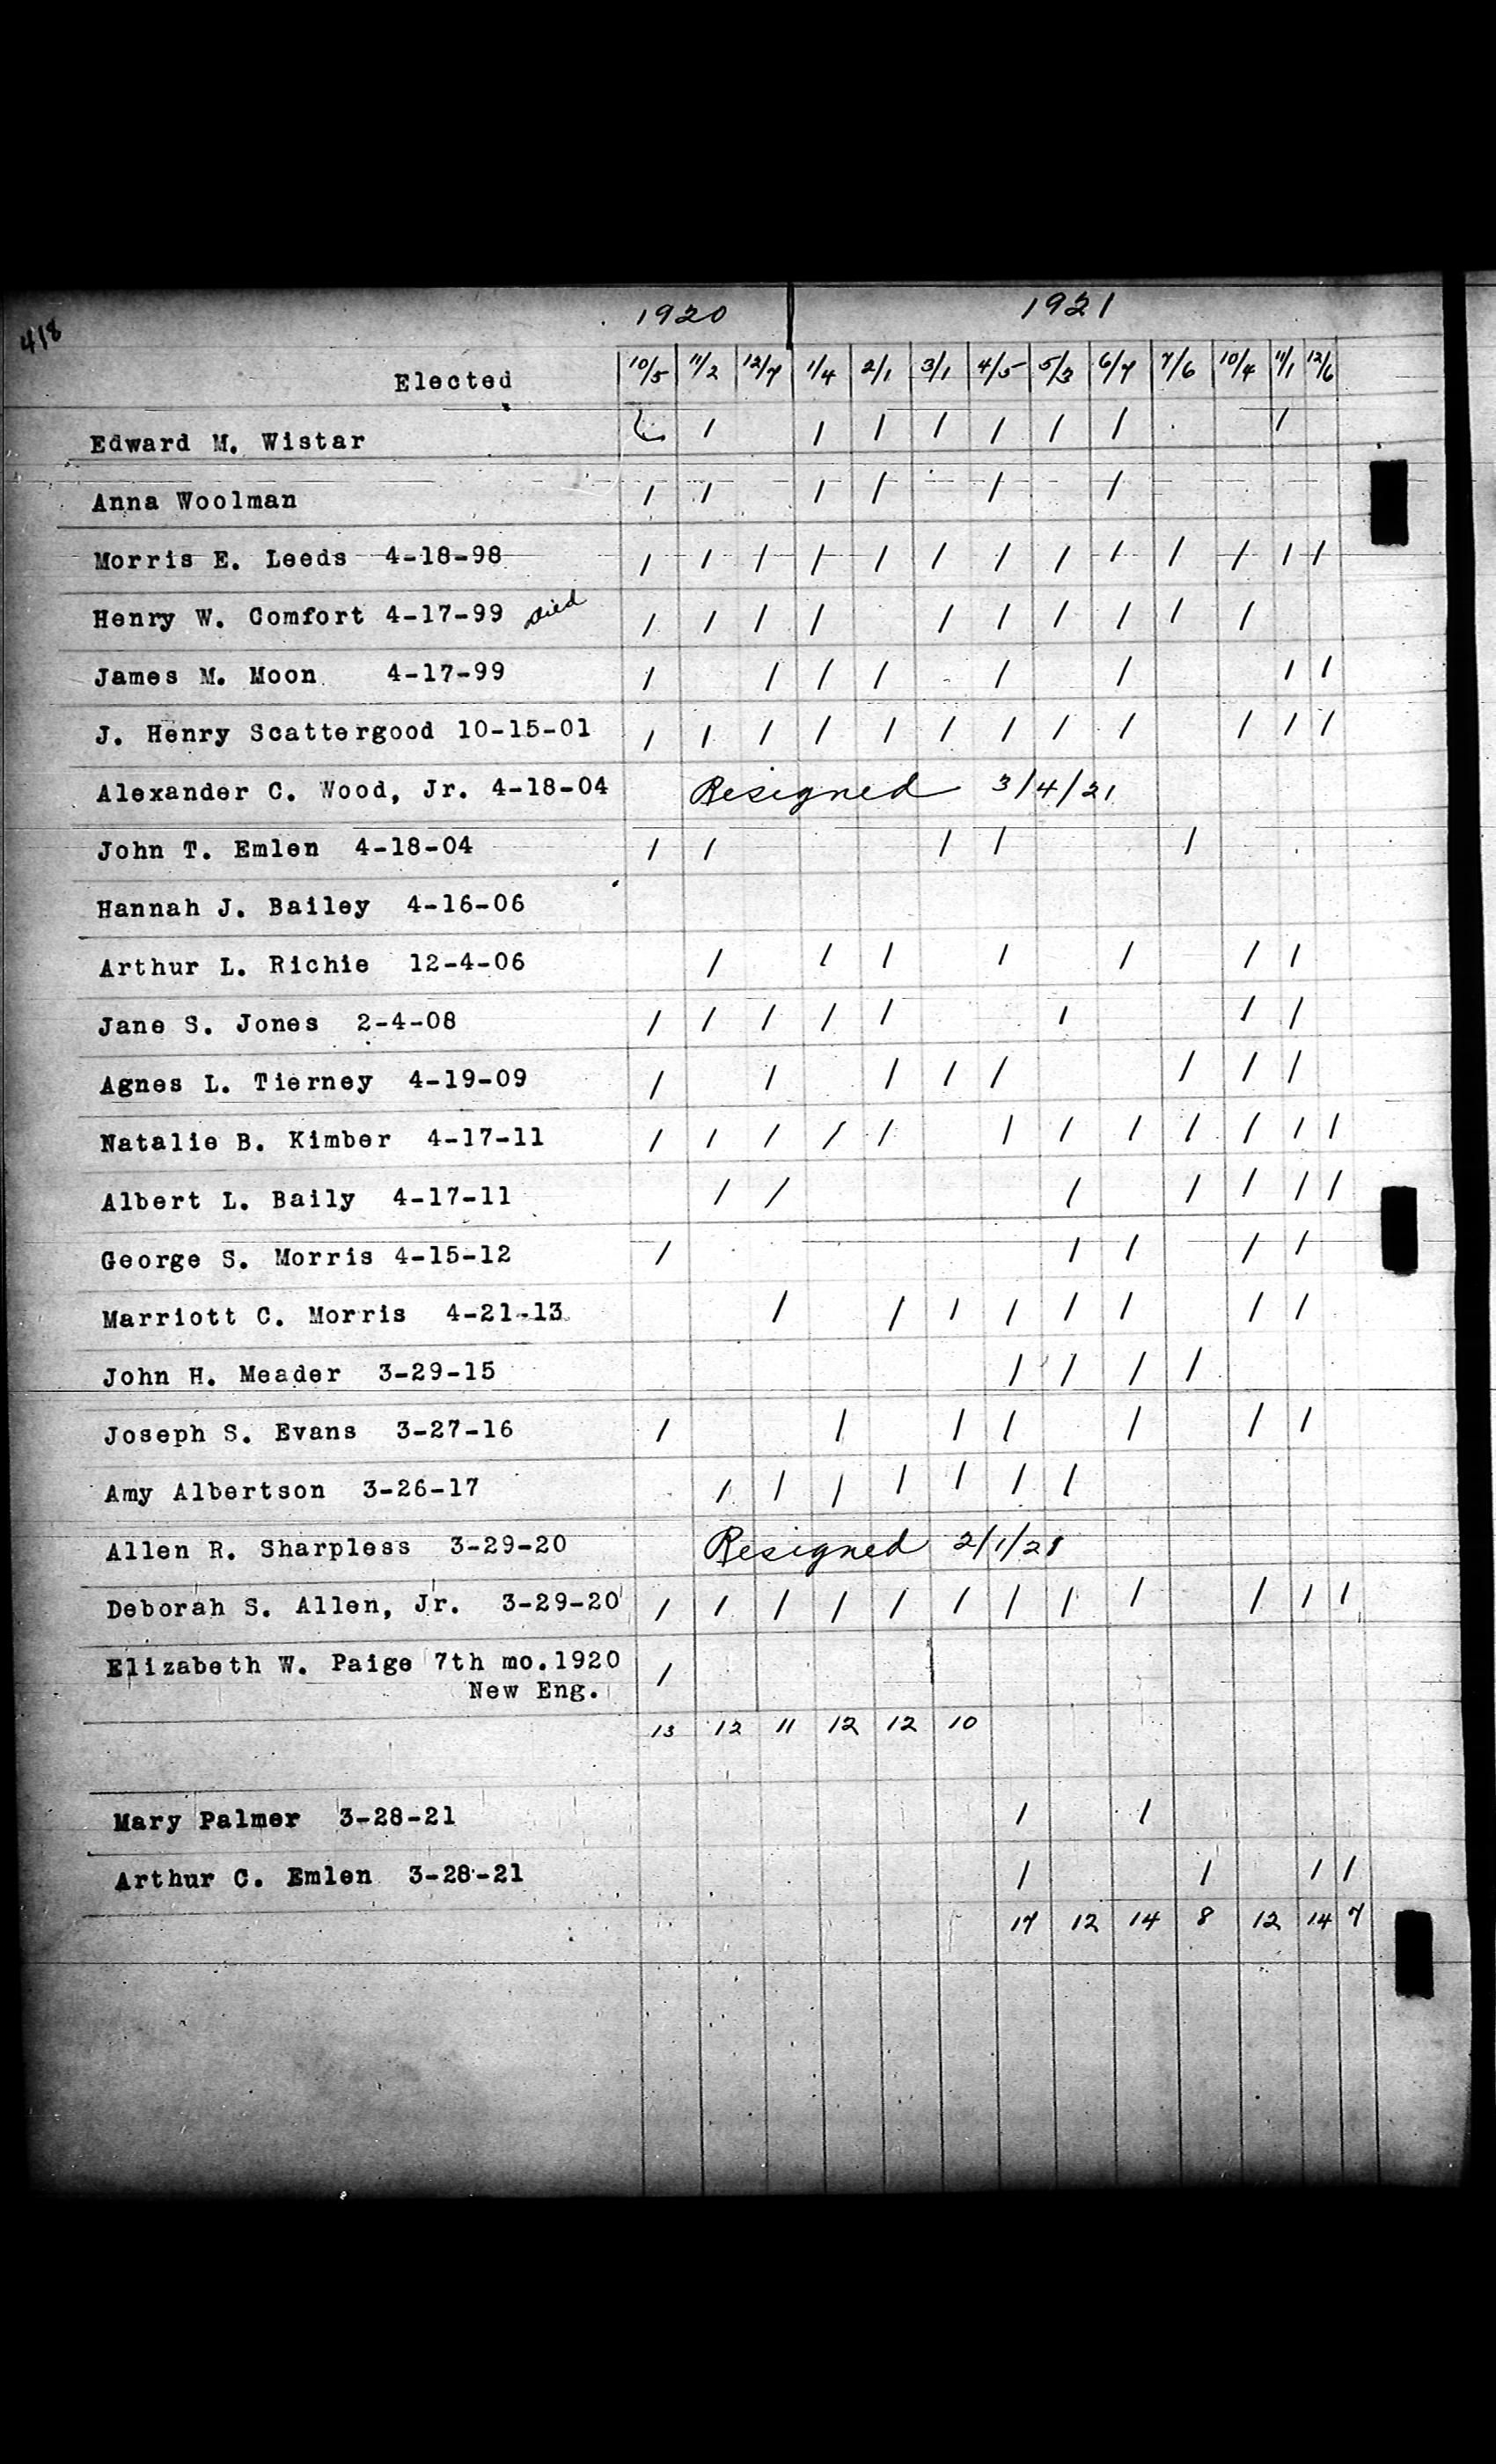 418
1920 1921
Elected 10/5 11/2 12/7 1/4 2/1 3/1 4/5 5/3 6/7 7/6 10/4 11/1 12/6
Edward M. Wistar / / / / / / / /
Anna Woolman / / / / / /
Morris E. Leeds 4-18-98 / / / / / / / / / / / / /
Henry W. Comfort 4-17-99 Died / / / / / / / / / /
James M. Moon 4-17-99 / / / / / / / /
J. Henry Scattergood 10-15-01 / / / / / / / / / / / /
Alexander C. Wood, Jr. 4-18-04 Resigned 3/4/21
John T. Emlen 4-18-04 / / / / /
Hannah J. Bailey 4-16-06
Arthur L. Richie 12-4-06 / / / / / / /
Jane S. Jones 2-4-08 / / / / / / / /
Agnes L. Tierney 4-19-09 / / / / / / / /
Natalie B. Kimber 4-17-11 / / / / / / / / / / / /
Albert L. Baily 4-17-11 / / / / / / /
George S. Morris 4-15-12 / / / / /
Marriott C. Morris 4-21-13 / / / / / / / /
John H. Meader 3-29-15 / / / /
Joseph S. Evans 3-27-16 / / / / / / /
Amy Albertson 3-26-17 / / / / / / /
Allen R. Sharpless 3-29-20 Resigned 2/1/21
Deborah S. Allen, Jr. 3-29-20 / / / / / / / / / / / /
Elizabeth W. Paige 7th mo.1920 /
New Eng.
13 12 11 12 12 10
Mary Palmer 3-28-21 / /
Arthur C. Emlen 3-28-21 / / / /
17 12 14 8 12 14 7